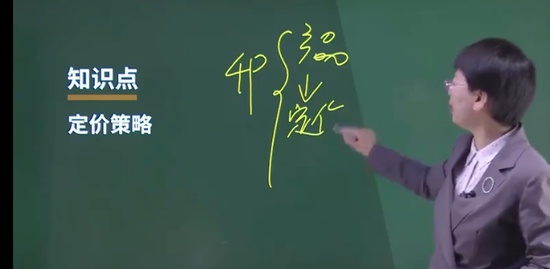 知识点
定价策略
4P
产品
定价